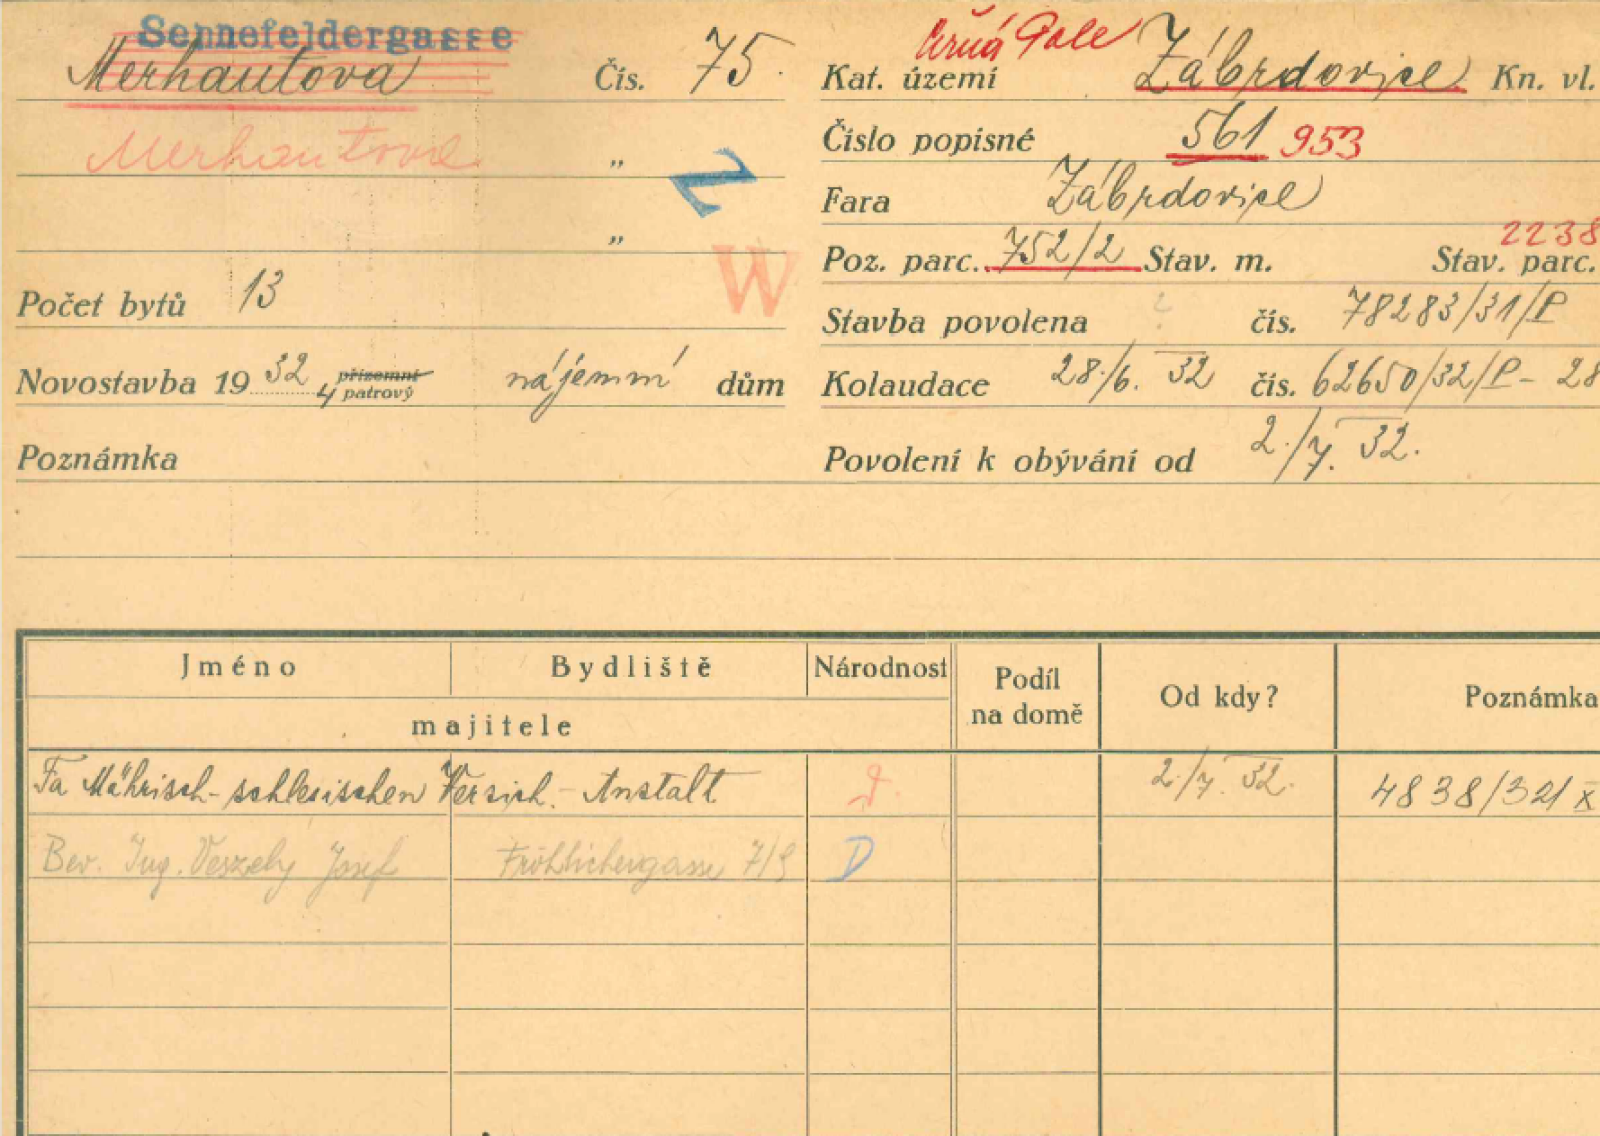 Sennefeldergasse
Merhautova Čís. 75.
Merhautova „
„
Počet bytů 13
Novostavba 19 32 4 přízemní patrový nájemní dům
Poznámka
Černá Pole
Kat. území Zábrdovice Kn. vl.
Číslo popisné 561 953
Fara Zábrdovice
2238
Poz. parc. 752/2 Stav. m. Stav. parc.
Stavba povolena ? čís. 78283/31/P
Kolaudace 28./6. 32 čís. 62650/32/P - 28
Povolení k obývání od 2./7. 32.
W
Jméno Bydliště Národnost Podíl na domě Od kdy? Poznámka
majitele
Fa Mährisch-schlesischen Versich.-Anstalt 2./7. 32. 4838/32/X
Bev. Ing. Veszely Josef Fröhlichergasse 7/9 D